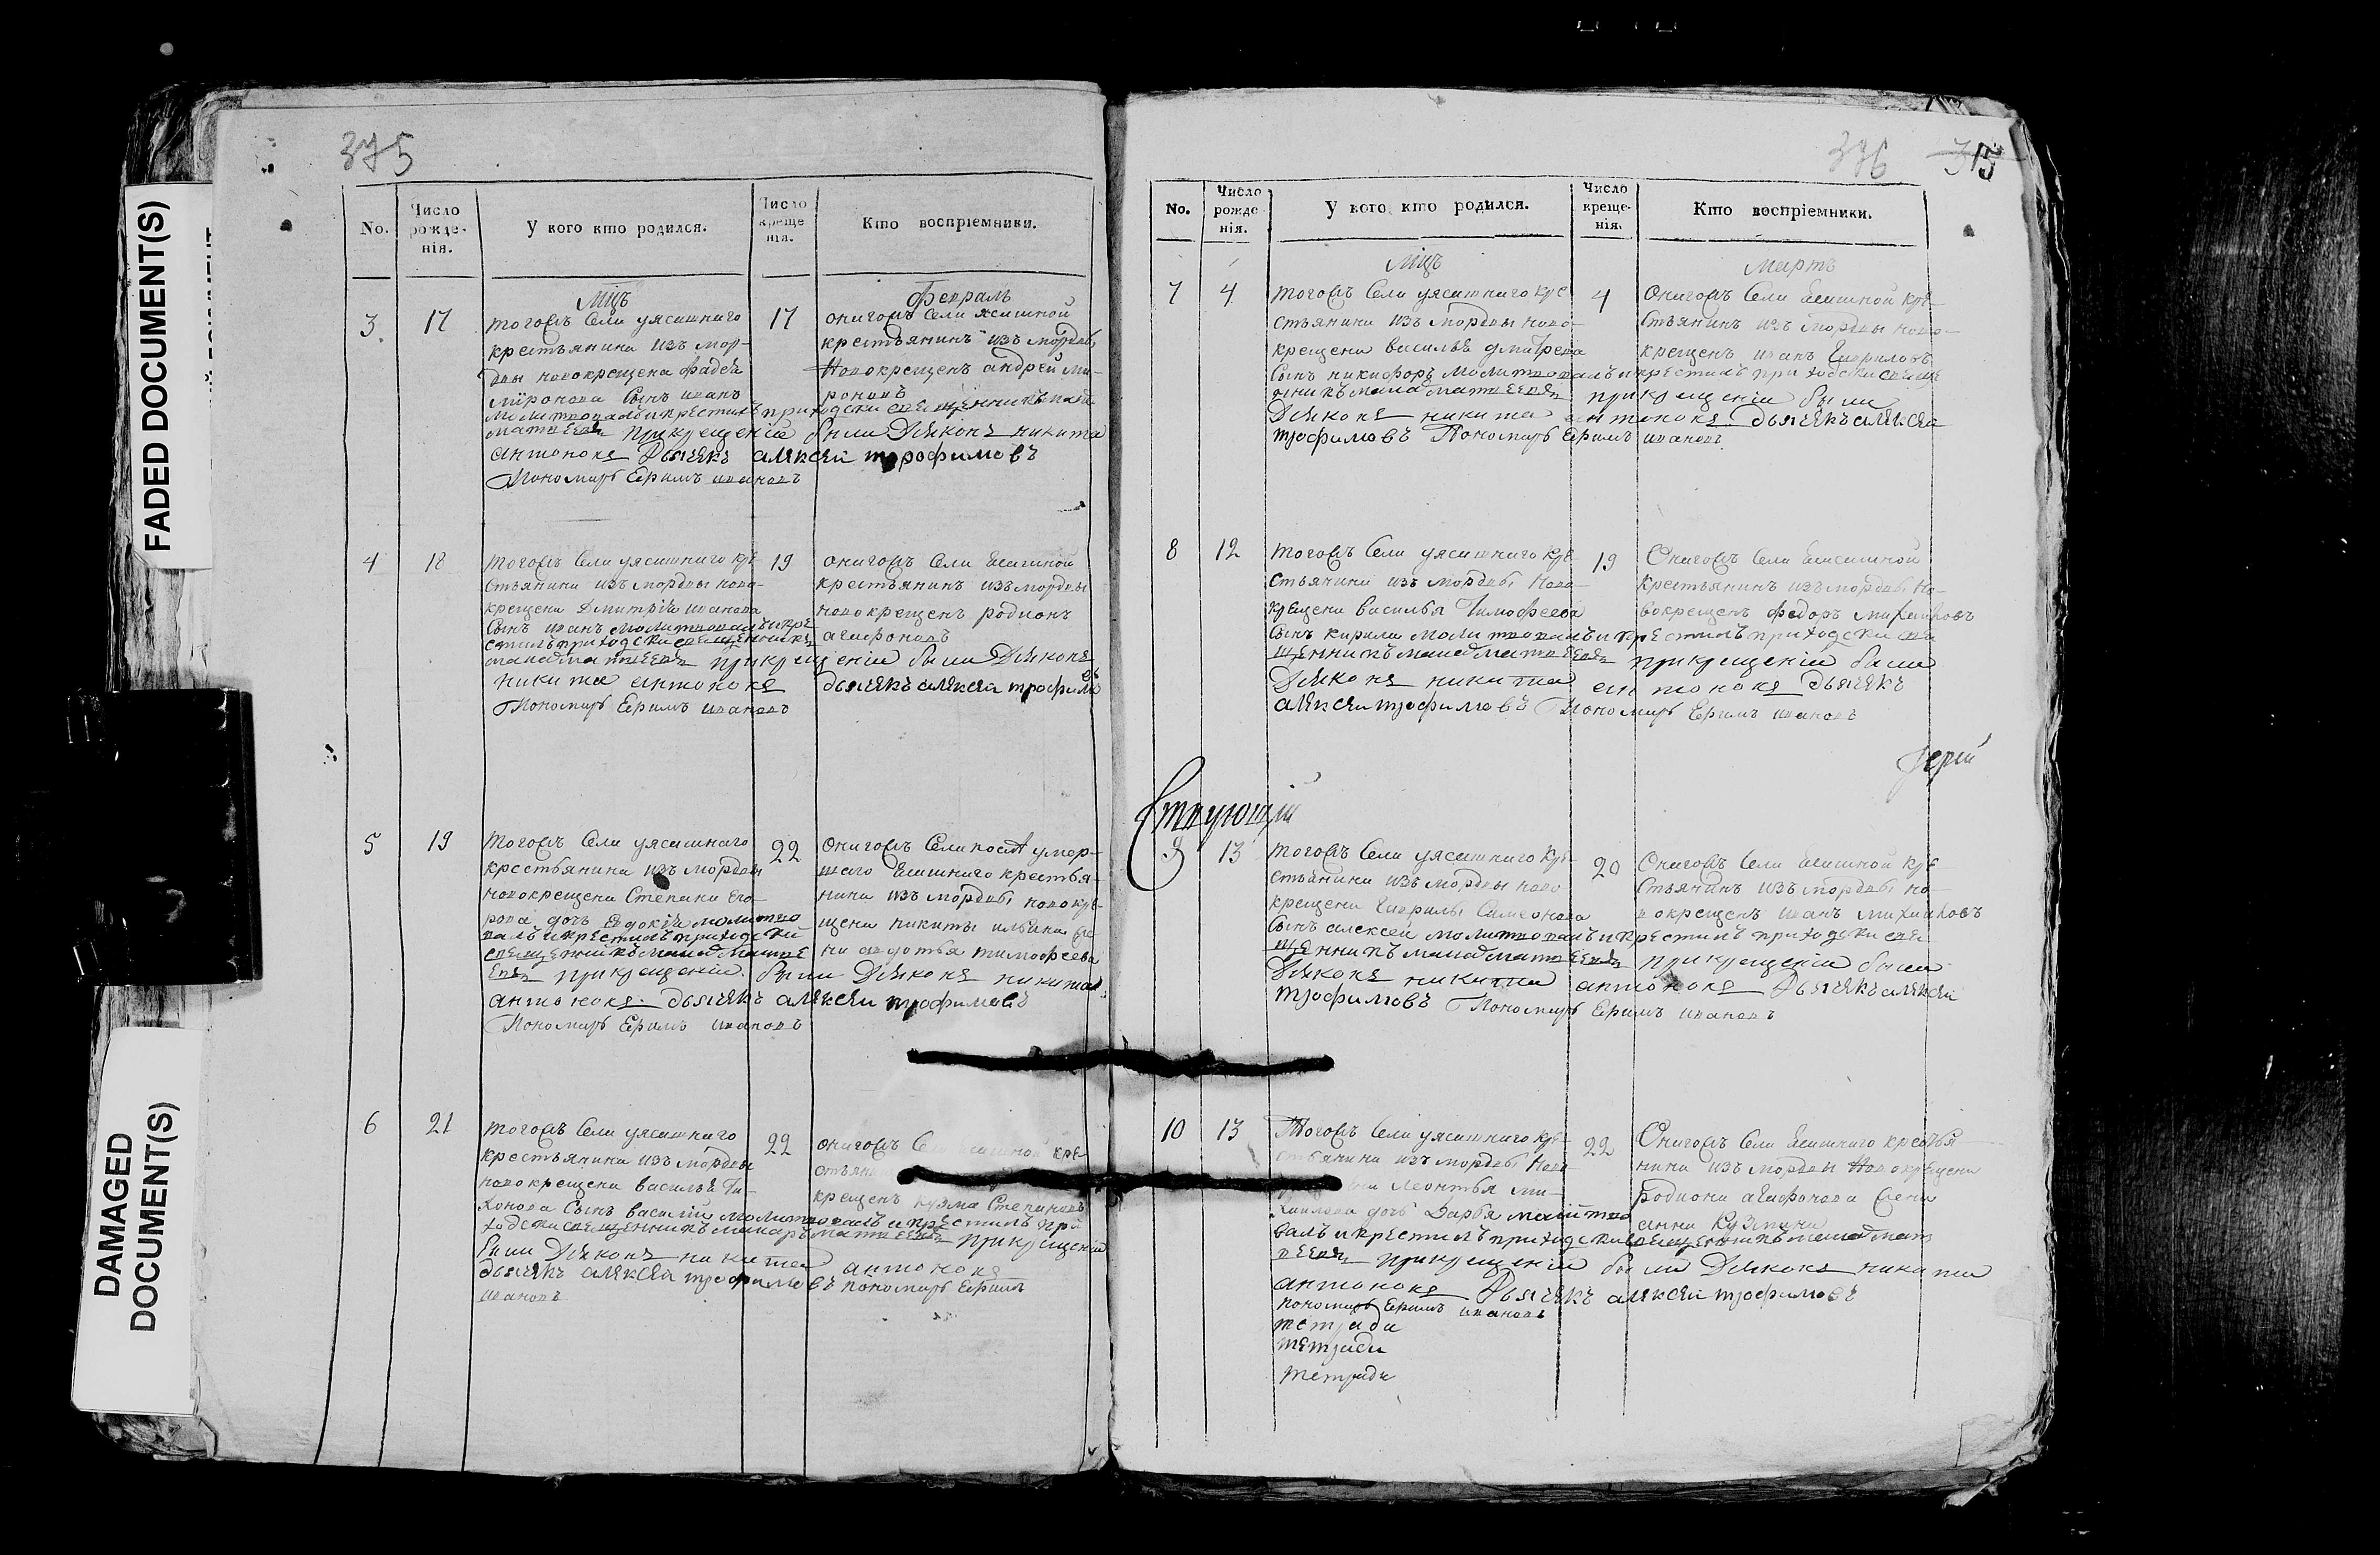 FADED DOCUMENT(S)
DAMAGED
DOCUMENT(S)
375
No.
Число
рожде-
нія.
У кого кто родился.
Число
креще
нія.
Кто воспріемники.
Мцъ
февраль
3.
17
тогожъ села уясашнаго
крестьянина изъ мор-
двы новокрещена фадея
миронова сынъ иванъ
молитвовалъ и крестилъ приходски священникъ
матвеевъ при крещеніи были Дьяконъ никита
антоновъ Дьячекъ алѣксей трофимовъ
Пономарь Ефимъ ивановъ
17
онагожъ села ясашной
крестьянинъ изъ мордвы
Новокрещенъ андрей ми-
роновъ
4
18
тогожъ села уясашнаго кре
стьянина изъ мордвы ново-
крещена Дмитрія иванова
сынъ иванъ молитвовалъ и кре
стилъ приходски священникъ
матвеевъ при крещеніи были Дьяконъ
никита антоновъ дьячекъ алѣксей трофимовъ
Пономарь Ефимъ ивановъ
19
онагожъ села ясашной
крестьянинъ изъ мордвы
новокрещенъ родионъ
агафоновъ
5
19
тогожъ села уясашнаго
крестьянина изъ мордвы
новокрещена Степана Его-
рова дочь Евдокия молитво
валъ и крестилъ приходски
священникъ матве
евъ при крещеніи были Дьяконъ никита
антоновъ дьячекъ алѣксей трофимовъ
Пономарь Ефимъ ивановъ
22
онагожъ села умер-
шаго ясашнаго крестья-
нина изъ мордвы новокре-
щена никиты ильина же
на авдотья тимофеева
6
21
тогожъ села уясашнаго
крестьянина изъ мордвы
новокрещена василья Ти-
хонова сынъ василий молитвовалъ и крестилъ при
ходски священникъ макаръ матвеевъ при крещеніи
были Дьяконъ никита антоновъ
дьячекъ алѣксей трофимовъ пономарь Ефимъ
ивановъ
22
онагожъ села ясашной кре
стьянинъ
крещенъ кузма Степановъ
376
315
No.
Число
рожде
нія.
У кого кто родился.
Число
креще-
нія.
Кто воспріемники.
Мцъ
Мартъ
7
4
тогожъ села уясашнаго кре
стьянина изъ мордвы ново-
крещена василья дмитрева
сынъ никифоръ молитвовалъ и крестилъ приходски свяще
никъ матвеевъ при крещеніи были
Дьяконъ никита антоновъ дьячекъ алѣксей
трофимовъ Пономарь Ефимъ ивановъ
4
онагожъ села ясашной кре-
стьянинъ изъ мордвы ново-
крещенъ иванъ Гавриловъ
8
12
тогожъ села уясашнаго кре
стьянина изъ мордвы ново-
крещена василья Тимофеева
сынъ кирила молитвовалъ и крестилъ приходски свя
щенникъ матвеевъ при крещеніи были
Дьяконъ никита антоновъ дьячекъ
алѣксей трофимовъ Пономарь Ефимъ ивановъ
19
Онагожъ села ясашной
крестьянинъ изъ мордвы но-
вокрещенъ федоръ михайловъ
Іерей
9
13
тогожъ села уясашнаго кре-
стьянина изъ мордвы ново
крещена Гаврилы Симеонова
сынъ алексей молитвовалъ и крестилъ приходски свя
щенникъ матвеевъ при крещеніи были
Дьяконъ никита антоновъ Дьячекъ алѣксей
трофимовъ Пономарь Ефимъ ивановъ
20
Онагожъ села ясашной кре
стьянинъ изъ мордвы но-
вокрещенъ иванъ михайловъ
10
13
Тогожъ села уясашнаго кре-
стьянина изъ мордвы ново-
Леонтья ми-
хайлова дочь Дарья молитво
валъ и крестилъ приходски священникъ мат
веевъ при крещеніи были Дьяконъ никита
антоновъ Дьячекъ алѣксей трофимовъ
пономарь Ефимъ ивановъ
тетради
тетради
тетради
22
Онагожъ села ясашнаго крестья
нина изъ мордвы Новокрещена
родиона агафонова жена
анна Кузмина